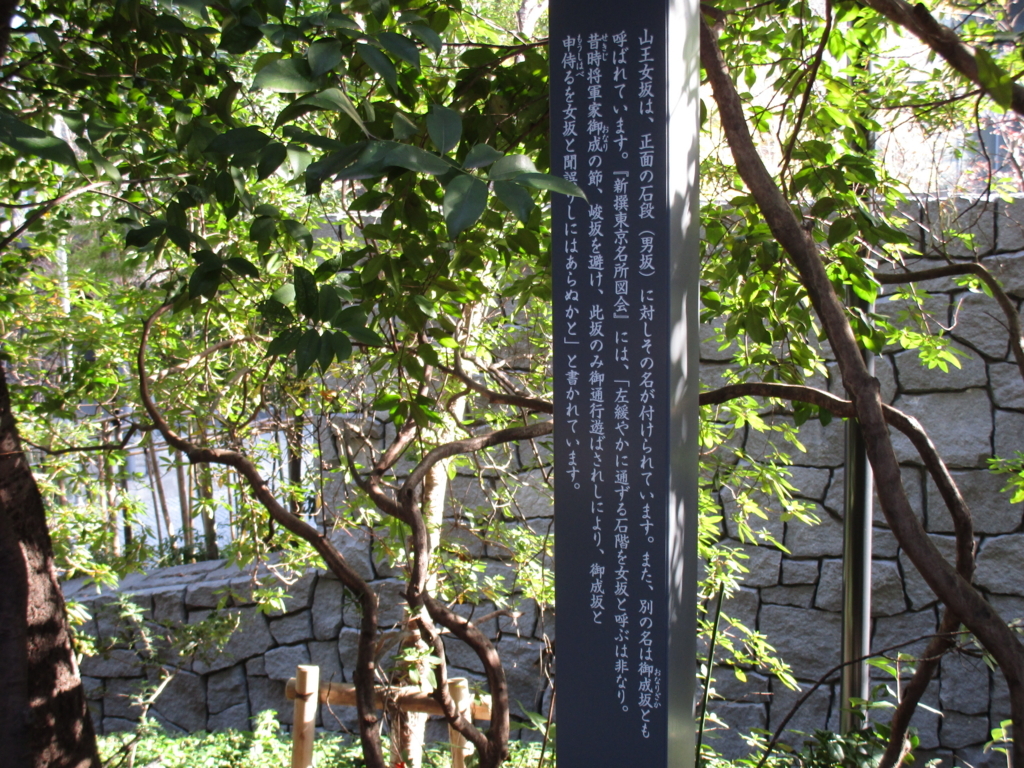 山王女坂は、正面の石段（男坂）に対しその名が付けられています。また、別の名は御成坂とも
呼ばれています。『新撰東京名所図会』には、「左緩やかに通ずる石階を女坂と呼ぶは非なり。
昔時将軍家御成の節、峻坂を避け、此坂のみ御通行遊ばされしにより、御成坂と
申侍るを女坂と聞誤りしにはあらぬかと」と書かれています。